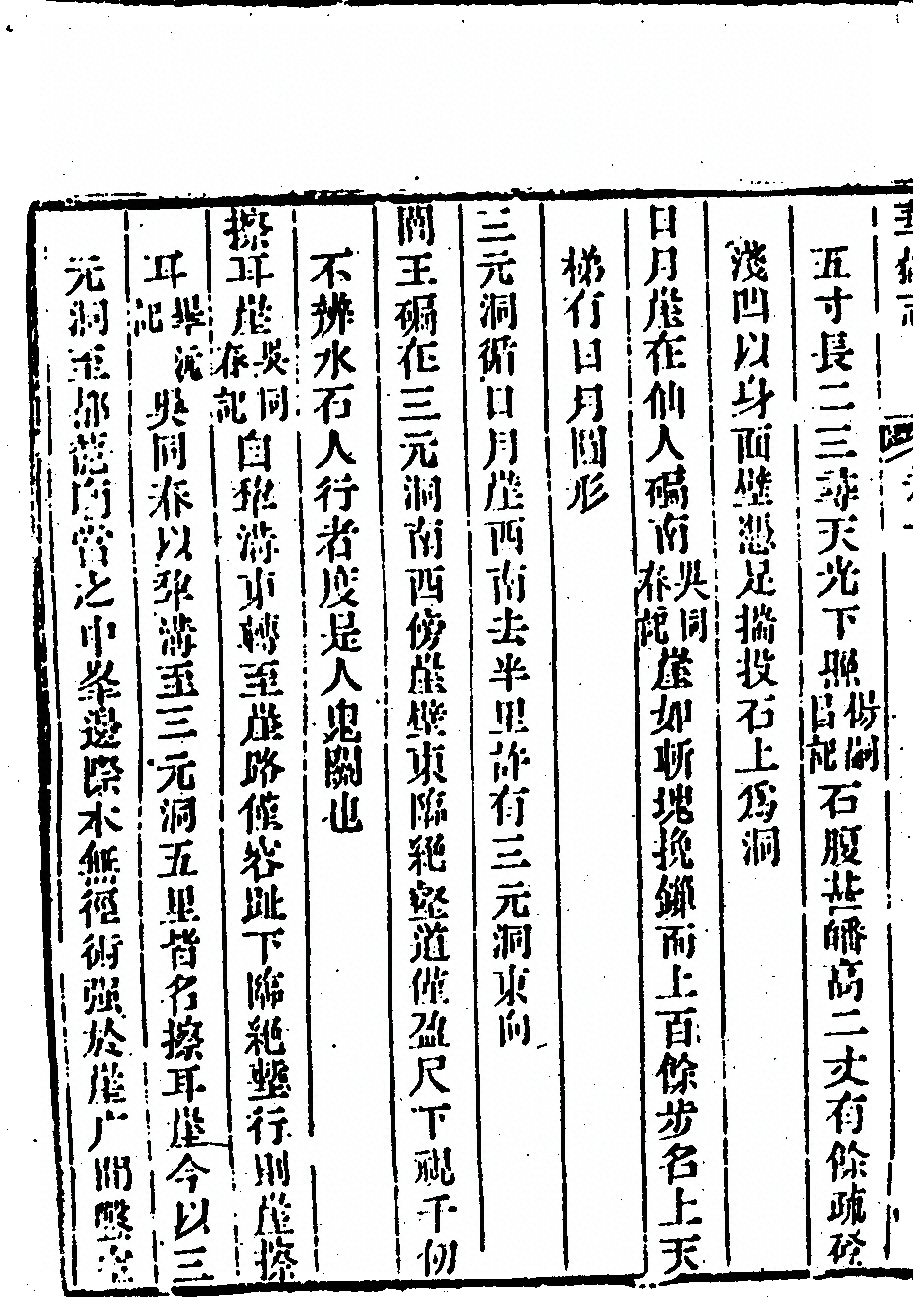 五寸長二三尋天光下照楊嗣昌記石腹營皤高二丈有餘疏磴
淺凹以身面壁憑足揣投石上爲洞
日月崖在仙人碥南吳同春記崖如斬塊挽鎖而上百餘步名上天
梯有日月圓形
三元洞循日月崖西南去半里許有三元洞東向
閻王碥在三元洞南西傍崖壁東臨絕壑道僅盈尺下視千仞
不辨水石人行者度是人鬼關也
擦耳崖吳同春記自犂溝東轉至崖路僅容趾下臨絕壑行則崖擦
耳畢沅記吳同春以犂溝至三元洞五里皆名擦耳崖今以三
元洞至都龍廟當之中峯邊際本無徑術强於崖广間鑿